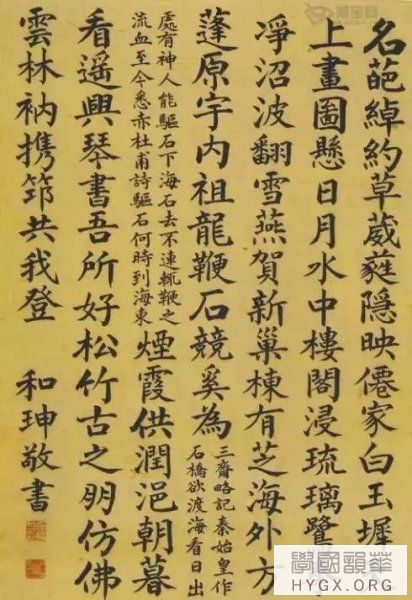 名葩綽約草葳蕤隱映僊家白玉墀
上畫圖懸日月水中樓閣浸琉璃鷺
淨沼波翻雪燕賀新巢棟有芝海外方
蓬原宇内祖龍鞭石競奚為
三齊略記秦始皇作
石橋欲渡海看日出
處有神人能驅石下海石去不連輒鞭之
流血至今悉赤杜甫詩驅石何時到海東
煙霞供潤浥朝暮
看遥興琴書吾所好松竹古之朋仿佛
雲林衲携筇共我登
和珅敬書
學國韻華
HYGX.ORG